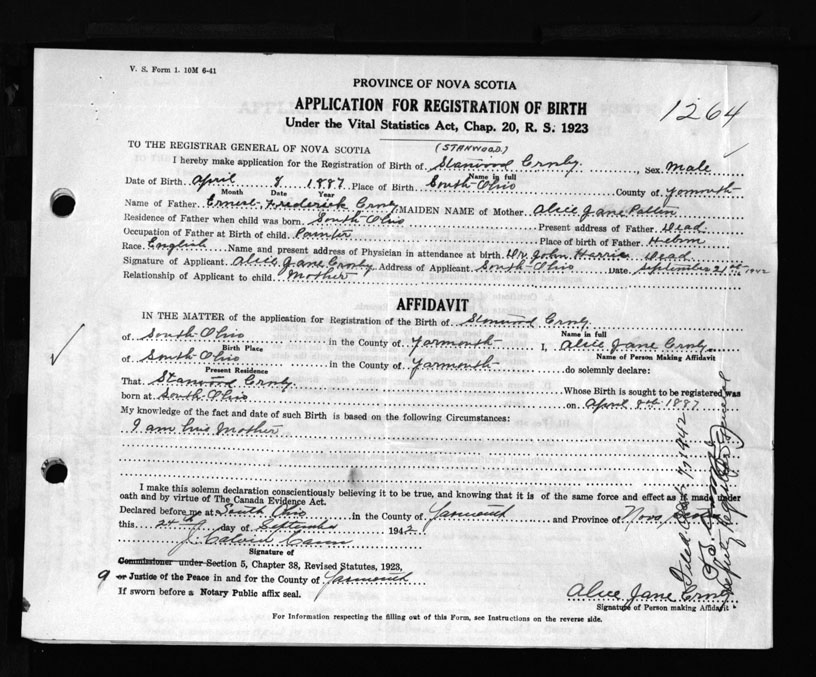 V. S. Form 1. 10M 6-41
PROVINCE OF NOVA SCOTIA
APPLICATION FOR REGISTRATION OF BIRTH
1264
Under the Vital Statistics Act, Chap. 20, R. S. 1923
TO THE REGISTRAR GENERAL OF NOVA SCOTIA
(STANWOOD)
I hereby make application for the Registration of Birth of Stanwood Crosby, Sex Male
Name in full
Date of Birth April 8 1887 Place of Birth South Ohio County of Yarmouth
Month Date Year
Name of Father Frederick Crosby MAIDEN NAME of Mother Alice Jane Patten
Residence of Father when child was born South Ohio Present address of Father Dead
Occupation of Father at Birth of child Painter Place of Birth of Father Hebron
Race English Name and present address of Physician in attendance at birth Dr. John Harris Dead
Signature of Applicant Alice Jane Crosby Address of Applicant South Ohio Date September 21st 1942
Relationship of Applicant to child Mother
AFFIDAVIT
IN THE MATTER of the application for Registration of the Birth of Stanwood Crosby
Name in full
of South Ohio in the County of Yarmouth I, Alice Jane Crosby
Birth Place Name of Person Making Affidavit
of South Ohio in the County of Yarmouth do solemnly declare:
Present Residence
That Stanwood Crosby Whose Birth is sought to be registered was
born at South Ohio on April 8th 1887
My knowledge of the fact and date of such Birth is based on the following Circumstances:
I am his Mother
I make this solemn declaration conscientiously believing it to be true, and knowing that it is of the same force and effect as if made under
oath and by virtue of The Canada Evidence Act.
Declared before me at South Ohio in the County of Yarmouth and Province of Nova
this 24th day of September 1942
J. Calvin Cann
Signature of
Commissioner under Section 5, Chapter 38, Revised Statutes, 1923,
or Justice of the Peace in and for the County of Yarmouth
If sworn before a Notary Public affix seal.
Alice Jane Crosby
Signature of Person making Affidavit
For Information respecting the filling out of this Form, see Instructions on the reverse side.
1942
Deputy Registrar General